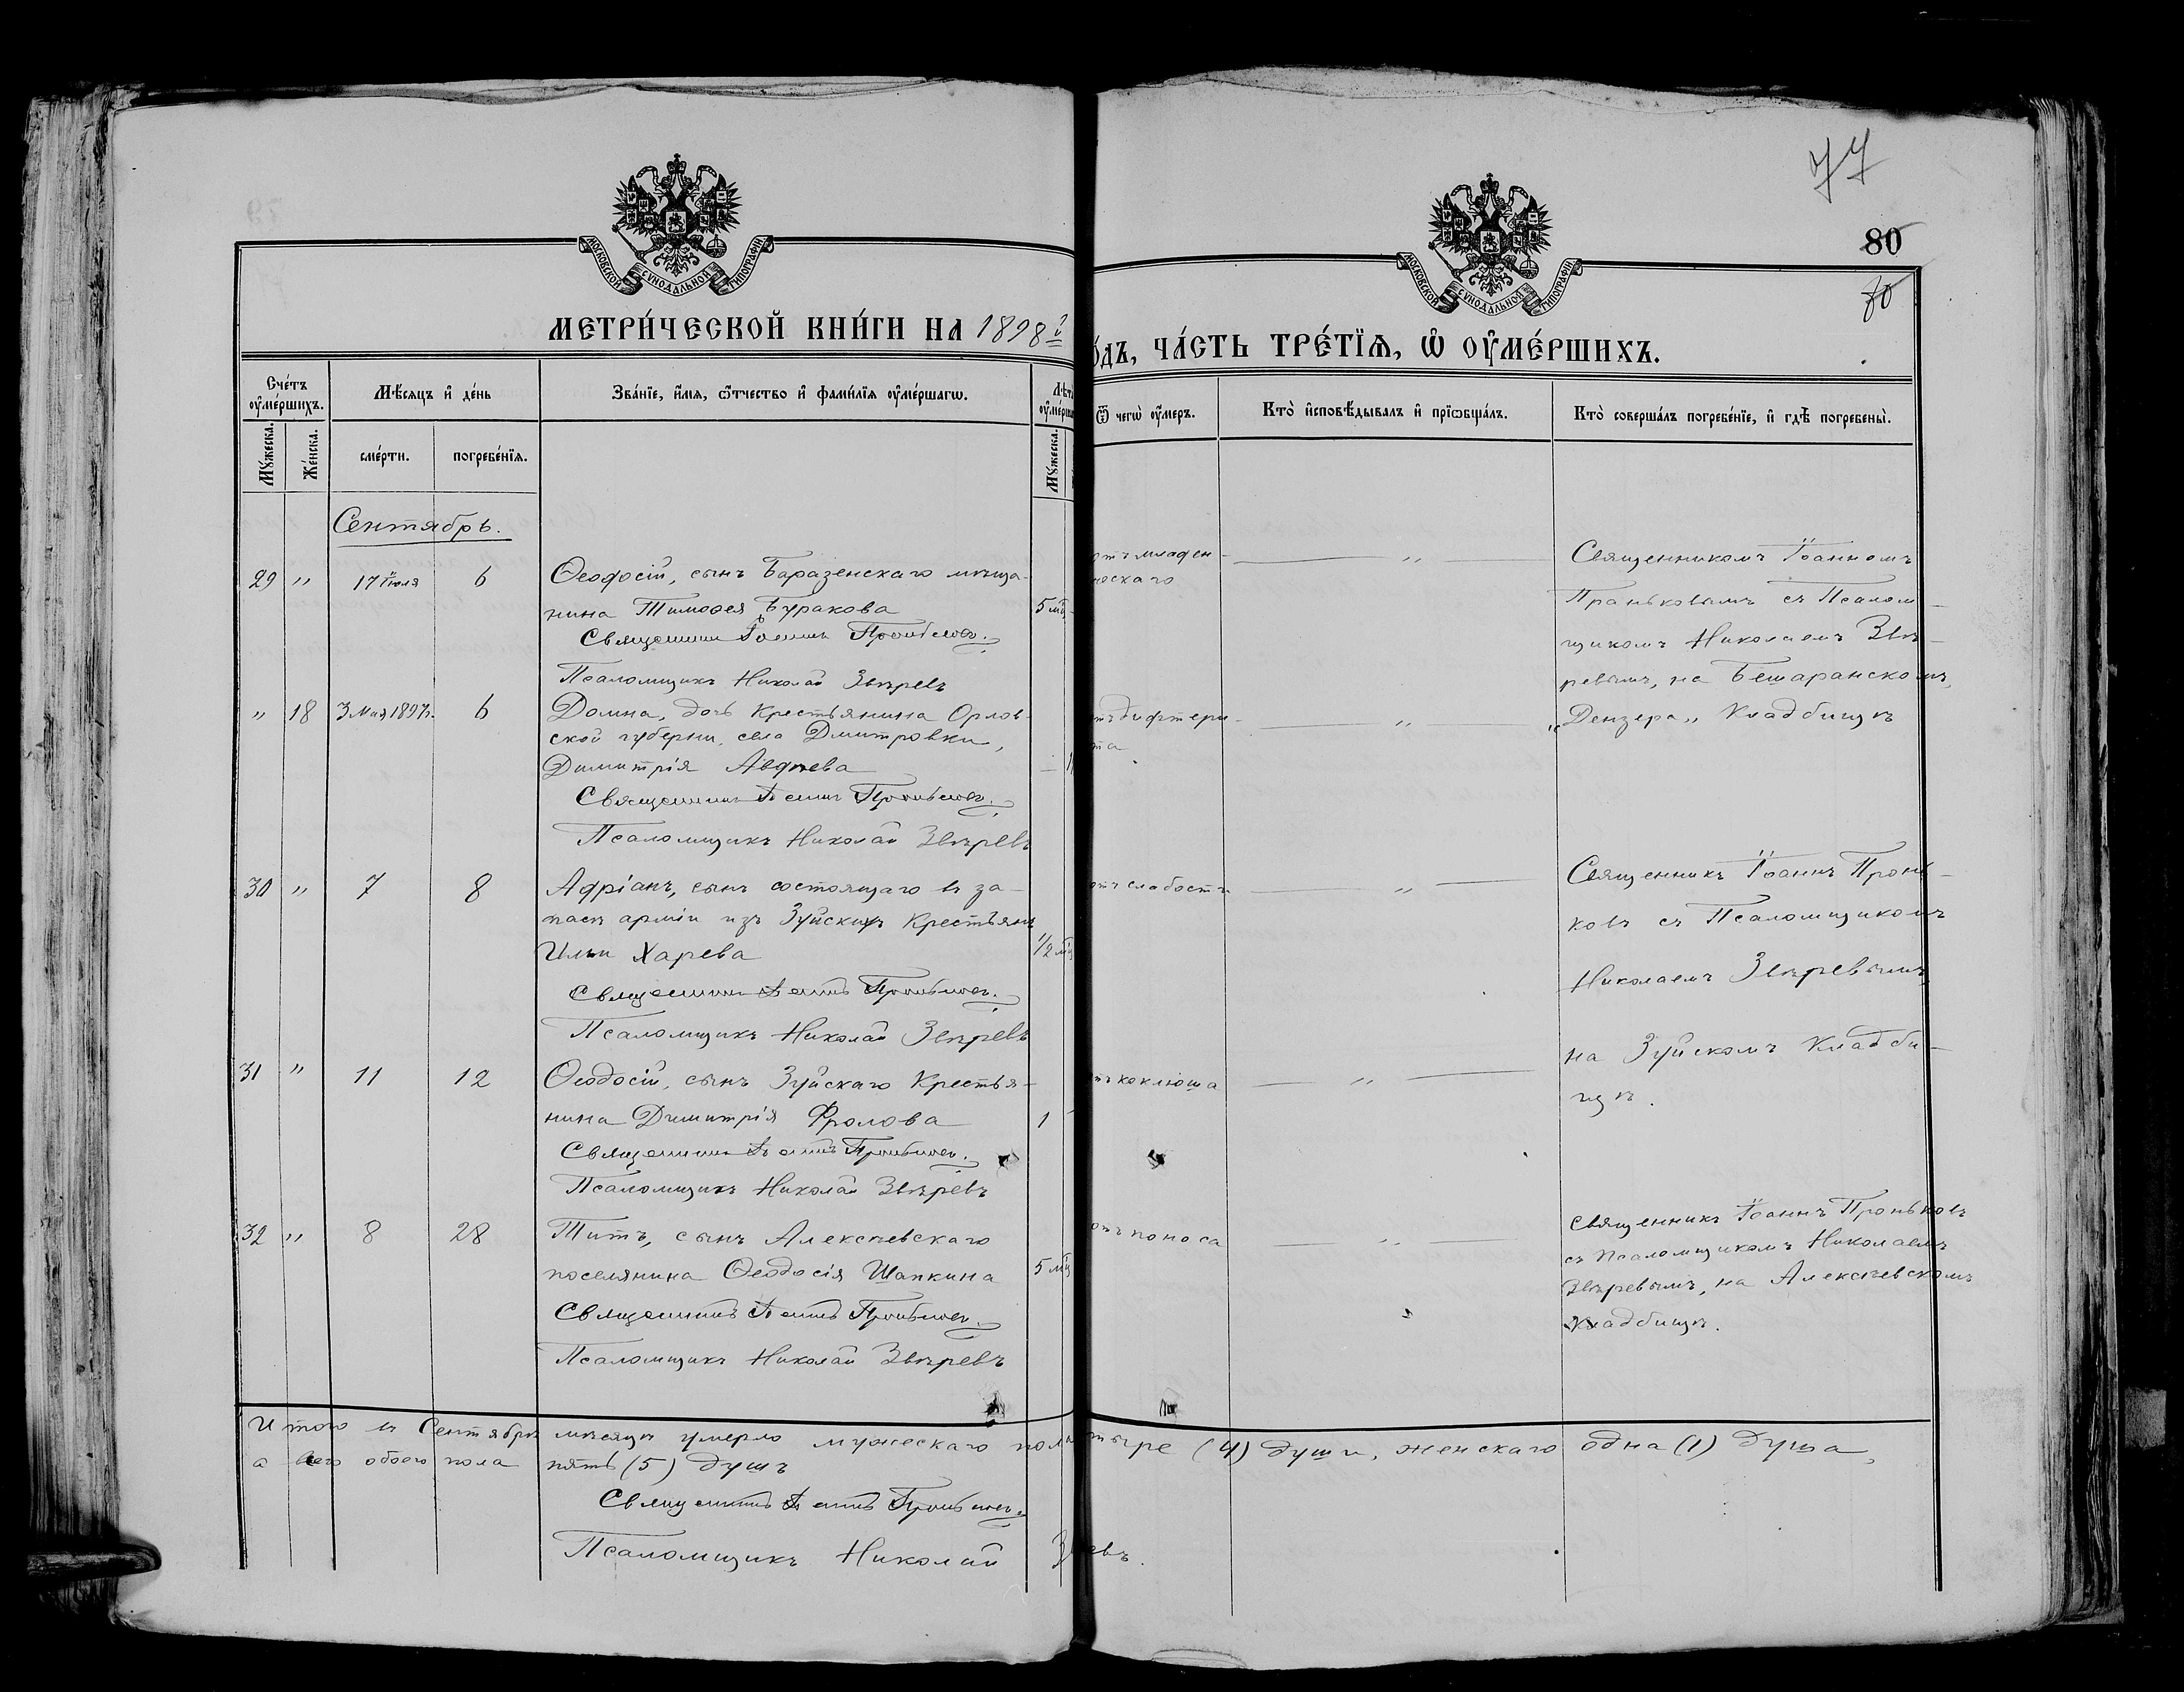 77
МОСКОВСКОЙ СѴНОДАЛЬНОЙ ТИПОГРАФІИ
МОСКОВСКОЙ СѴНОДАЛЬНОЙ ТИПОГРАФІИ
80
МЕТРИ́ЧЕСКОЙ КНИ́ГИ НА 1898й
О́ДЪ, ЧА́СТЬ ТРЕ́ТЇѦ, Ѡ҆ ОУ҆МЕ́РШИХЪ.
Сче́тъ оу҆ме́ршихъ.
Мꙋжеска.
Же́нска.
Мѣ́сяцъ и҆ де́нь
сме́рти.
погребе́нїя.
Зва́нїе, и҆́мя, ѻ҆́тчество и҆ фамі́лїя оу҆ме́ршагѡ.
Мꙋжеска.
Ѿ чегѡ̀ оу҆́меръ.
Кто̀ и҆сповѣ́дывалъ и҆ прїѡбща́лъ.
Кто̀ соверша́лъ погребе́нїе, и҆ гдѣ̀ погребены̀.
Сентябрь.
29 " 17 Іюля 6
Ѳеодосій, сынъ Баразенскаго мѣща-
нина Тимоѳея Буракова 5 мц
Священникъ Іоаннъ Проньковъ.
Псаломщикъ Николай Звѣревъ
отъ младен-
ческаго
"
Священникомъ Іоанномъ
Проньковымъ съ Псалом-
щикомъ Николаемъ Звѣ-
ревымъ, на Бешаранскомъ,
„Дензера„ Кладбищѣ
" 18 3 Мая 1897г. 6
Домна, дочь Крестьянина Орлов-
ской губерни, села Дмитровки,
Димитрія Авдѣева
Священникъ Іоаннъ Проньковъ.
Псаломщикъ Николай Звѣревъ
отъ дифтери-
та
"
30 " 7 8
Адріанъ, сынъ состоящаго въ за-
пасѣ арміи изъ Зуйскихъ Крестьянъ
Ильи Харева 1/2 мц
Священникъ Іоаннъ Проньковъ.
Псаломщикъ Николай Звѣревъ
отъ слабости
"
Священникъ Іоаннъ Пронь-
ковъ съ Псаломщикомъ
Николаемъ Звѣревымъ,
на Зуйскомъ Кладби-
щѣ.
31 " 11 12
Ѳеодосій, сынъ Зуйскаго Крестья-
нина Димитрія Фролова 1
Священникъ Іоаннъ Проньковъ.
Псаломщикъ Николай Звѣревъ
отъ коклюша
"
32 " 8 28
Титъ, сынъ Алексѣевскаго
поселянина Ѳеодосія Шапкина 5 мц
Священникъ Іоаннъ Проньковъ.
Псаломщикъ Николай Звѣревъ
отъ поноса
"
Священникъ Іоаннъ Проньковъ
съ Псаломщикомъ Николаемъ
Звѣревымъ, на Алексѣевскомъ
Кладбищѣ.
Итого въ Сентябрѣ мѣсяцѣ умерло мужескаго пола четыре (4) души, женскаго одна (1) душа,
а всего обоего пола пять (5) душъ
Священникъ Іоаннъ Проньковъ.
Псаломщикъ Николай Звѣревъ.